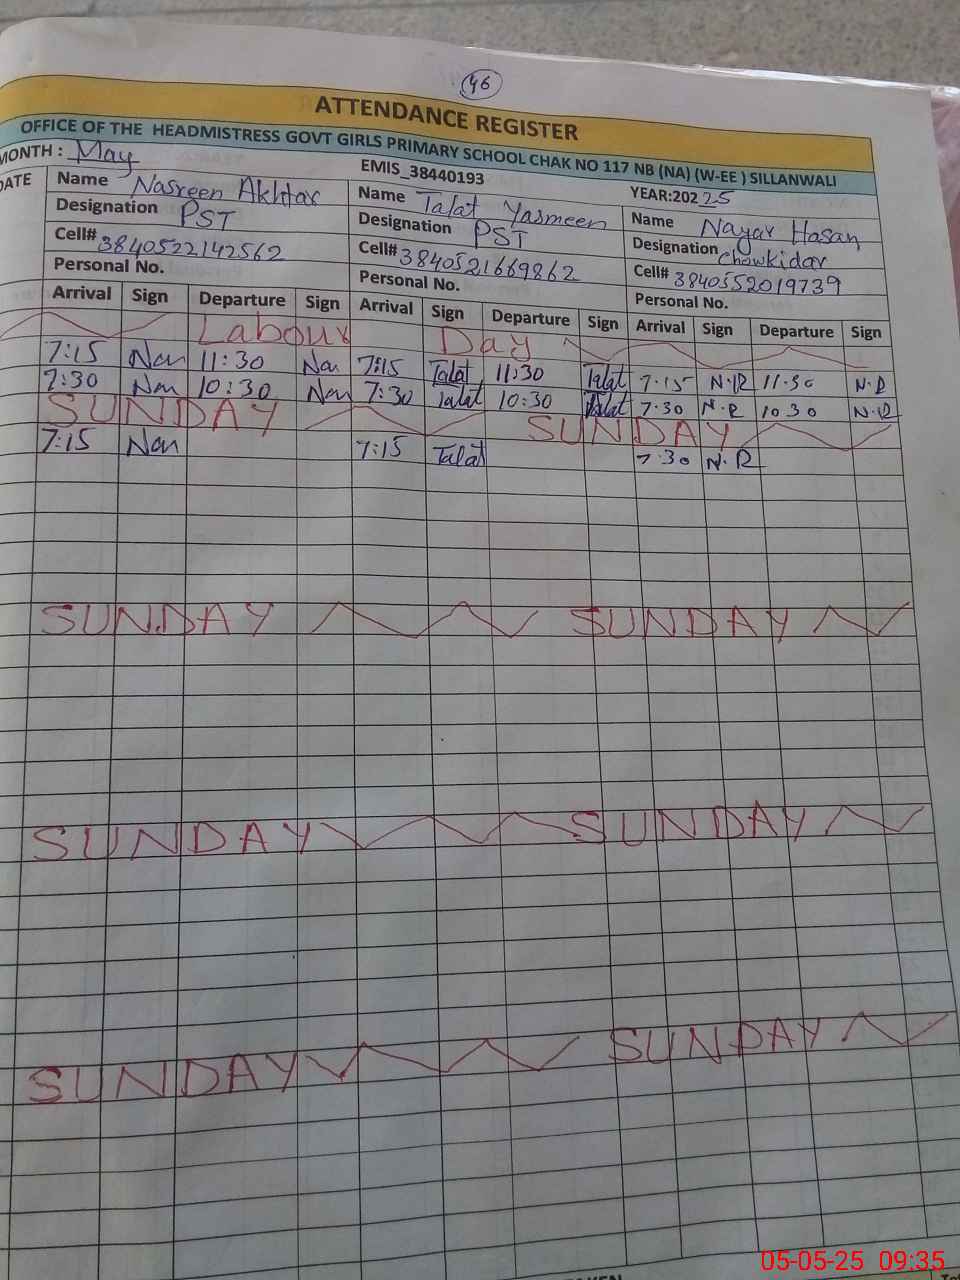 46
ATTENDANCE REGISTER
OFFICE OF THE HEADMISTRESS GOVT GIRLS PRIMARY SCHOOL CHAK NO 117 NB (NA) (W-EE ) SILLANWALI
MONTH : May EMIS_38440193 YEAR:202 25
DATE Name Nasreen Akhtar Name Talat Yasmeen Name Nayar Hasan
Designation PST Designation PST Designation Chowkidar
Cell# 3840522142562 Cell# 3840521669862 Cell# 3840552019739
Personal No. Personal No. Personal No.
Arrival Sign Departure Sign Arrival Sign Departure Sign Arrival Sign Departure Sign
Labour Day
7:15 Nan 11:30 Nan 7:15 Talat 11:30 Talat 7:15 N.R 11:30 N.R
7:30 Nan 10:30 Nan 7:30 Talat 10:30 Talat 7.30 N.R 10 30 N.R
SUNDAY SUNDAY
7:15 Nan 7:15 Talat 7.30 N.R
SUNDAY SUNDAY
SUNDAY SUNDAY
SUNDAY SUNDAY
05-05-25 09:35